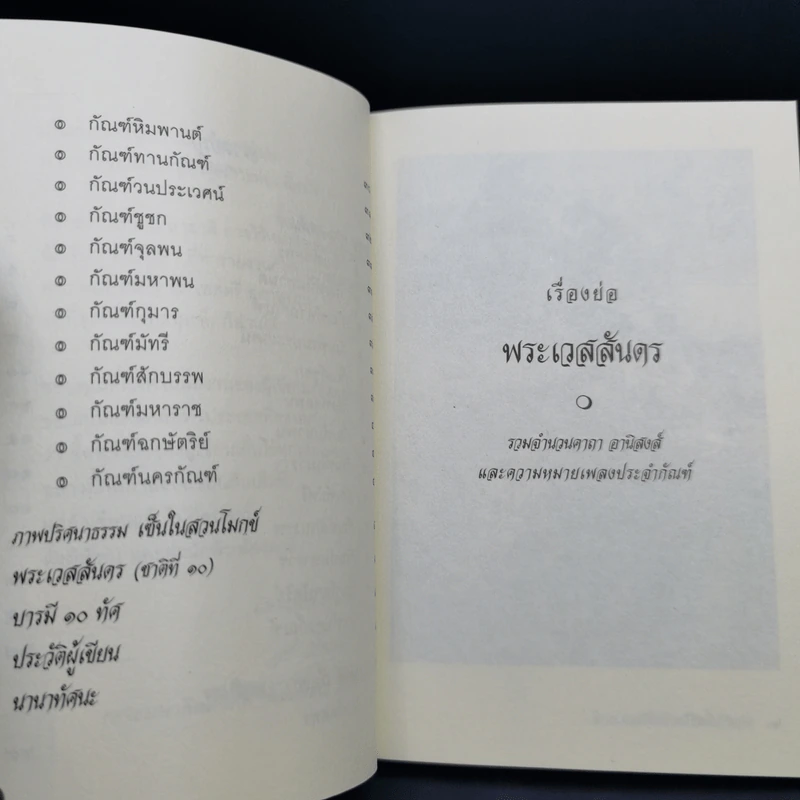 ๏ กัณฑ์หิมพานต์
๏ กัณฑ์ทานกัณฑ์
๏ กัณฑ์วนประเวศน์
๏ กัณฑ์ชูชก
๏ กัณฑ์จุลพน
๏ กัณฑ์มหาพน
๏ กัณฑ์กุมาร
๏ กัณฑ์มัทรี
๏ กัณฑ์สักบรรพ
๏ กัณฑ์มหาราช
๏ กัณฑ์ฉกษัตริย์
๏ กัณฑ์นครกัณฑ์
ภาพปริศนาธรรม เซ็นในสวนโมกข์
พระเวสสันดร (ชาติที่ ๑๐)
บารมี ๑๐ ทัศ
ประวัติผู้เขียน
นานาทัศนะ
เรื่องย่อ
พระเวสสันดร
รวมจำนวนคาถา อานิสงส์
และความหมายเพลงประจำกัณฑ์